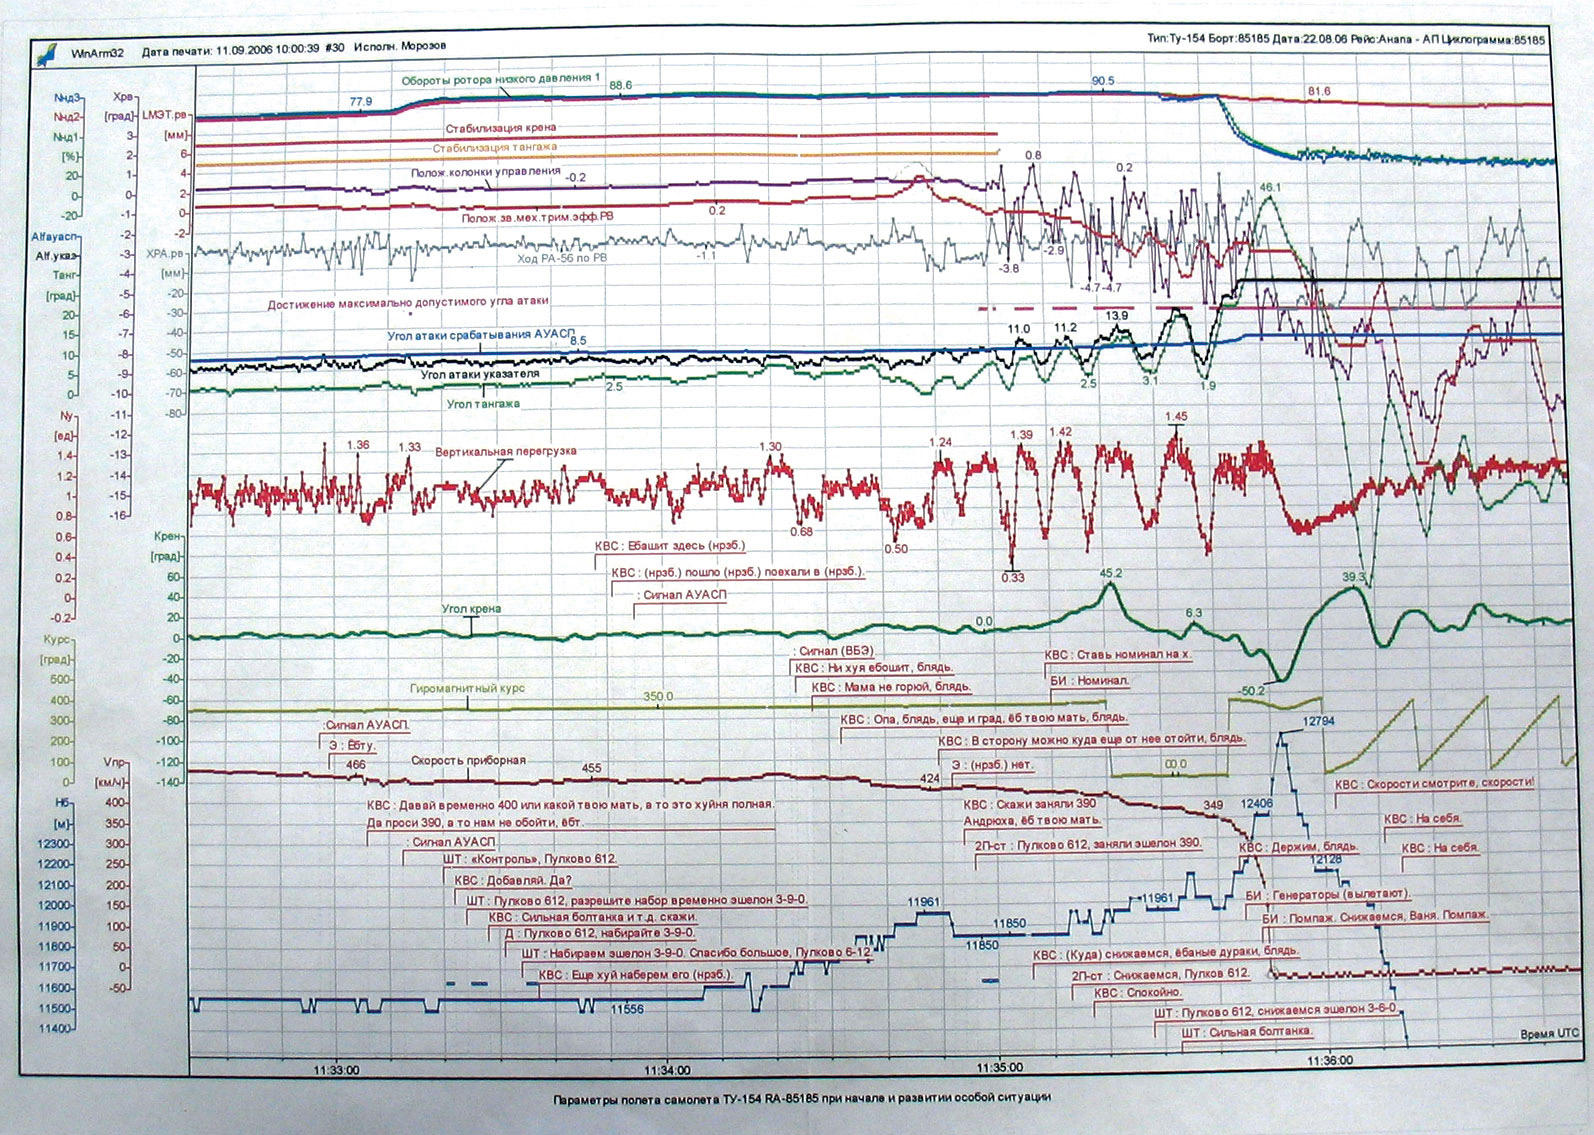 WinArm32 Дата печати: 11.09.2006 10:00:39 #30 Исполн. Морозов
Тип:Ту-154 Борт:85185 Дата:22.08.06 Рейс:Анапа - АП Циклограмма:85185
Nнд3
Nнд2
Nнд1
[%]
20
0
-20
Alfауасп
Alf.указ
Танг
[град]
20
15
10
5
0
Ny
[ед]
1.4
1.2
1
0.8
0.6
0.4
0.2
0
-0.2
Курс
[град]
500
400
300
200
100
0
Hб
[м]
12300
12200
12100
12000
11900
11800
11700
11600
11500
11400
Xрв
[град]
3
2
1
0
-1
-2
-3
-4
-5
-6
-7
-8
-9
-10
-11
-12
-13
-14
-15
-16
Vпр
[км/ч]
400
350
300
250
200
150
100
50
0
-50
LМЭТ.рв
[мм]
6
4
2
0
-2
ХРА.рв
[мм]
-20
-30
-40
-50
-60
-70
-80
Крен
[град]
60
40
20
0
-20
-40
-60
-80
-100
-120
-140
Обороты ротора низкого давления 1
77.9
88.6
90.5
81.6
Стабилизация крена
Стабилизация тангажа
Полож.колонки управления
-0.2
0.8
0.2
46.1
Полож.зв.мех.трим.эфф.РВ
0.2
-3.8
-2.9
-4.7
-4.7
Ход РА-56 по РВ
-1.1
Достижение максимально допустимого угла атаки
Угол атаки срабатывания АУАСП
8.5
11.0
11.2
13.9
Угол атаки указателя
2.5
2.5
3.1
1.9
Угол тангажа
1.36
1.33
Вертикальная перегрузка
1.30
1.24
1.39
1.42
1.45
0.68
0.50
0.33
КВС : Ебашит здесь (нрзб.)
КВС : (нрзб.) пошло (нрзб.) поехали в (нрзб.).
: Сигнал АУАСП
45.2
39.3
Угол крена
0.0
6.3
-50.2
: Сигнал (ВБЭ)
КВС : Ни хуя ебошит, блядь.
КВС : Мама не горюй, блядь.
КВС : Ставь номинал на х.
БИ : Номинал.
Гиромагнитный курс
350.0
КВС : Опа, блядь, еще и град, ёб твою мать, блядь.
КВС : В сторону можно куда еще от нее отойти, блядь.
Э : (нрзб.) нет.
00.0
12794
:Сигнал АУАСП.
Э : Ёбту.
466
Скорость приборная
455
424
349
КВС : Скорости смотрите, скорости!
КВС : Давай временно 400 или какой твою мать, а то это хуйня полная.
Да проси 390, а то нам не обойти, ёбт.
: Сигнал АУАСП
ШТ : «Контроль», Пулково 612.
КВС : Добавляй. Да?
ШТ : Пулково 612, разрешите набор временно эшелон 3-9-0.
КВС : Сильная болтанка и т.д. скажи.
Д : Пулково 612, набирайте 3-9-0.
ШТ : Набираем эшелон 3-9-0. Спасибо большое, Пулково 6-12.
КВС : Еще хуй наберем его (нрзб.).
КВС : Скажи заняли 390
Андрюха, ёб твою мать.
2П-ст : Пулково 612, заняли эшелон 390.
12406
КВС : На себя.
КВС : Держим, блядь.
КВС : На себя.
12128
БИ : Генераторы (вылетают).
БИ : Помпаж. Снижаемся, Ваня. Помпаж.
11961
11850
11850
11961
КВС : (Куда) снижаемся, ёбаные дураки, блядь.
2П-ст : Снижаемся, Пулков 612.
КВС : Спокойно.
ШТ : Пулково 612, снижаемся эшелон 3-6-0.
ШТ : Сильная болтанка.
11556
Время UTC
11:33:00
11:34:00
11:35:00
11:36:00
Параметры полета самолета ТУ-154 RA-85185 при начале и развитии особой ситуации